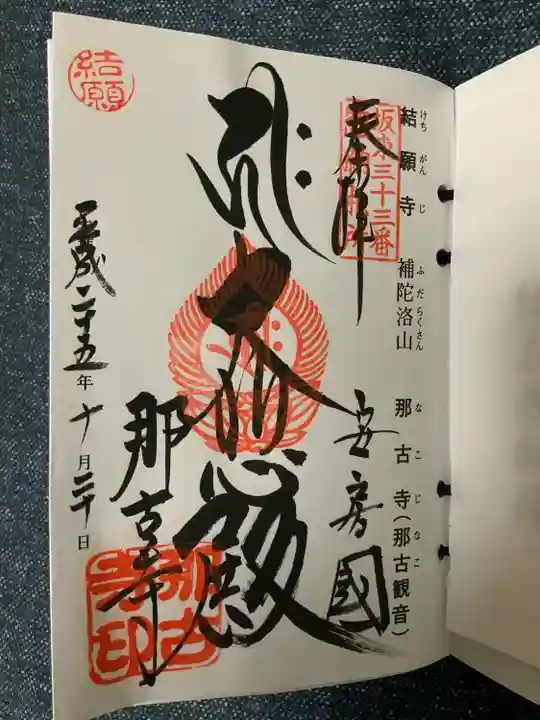 結願寺 補陀洛山 那古寺(那古観音)
けちがんじ ふだらくさん なこじ なこ
坂東三十三番
奉拝 安房國
大悲殿
那古寺
平成二十五年十月二十日
結願
那古寺印